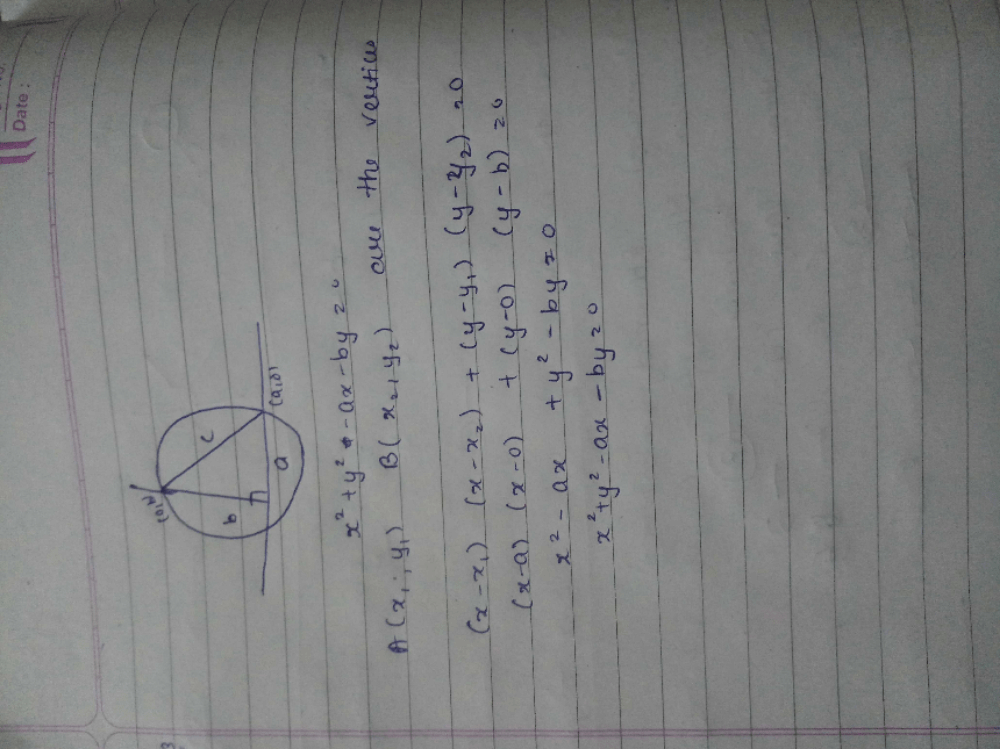 Date :
(0,b)
c
b
a
(a,0)
x² + y² - ax - by = 0
A(x₁, y₁) B(x₂, y₂) are the vertices
(x - x₁) (x - x₂) + (y - y₁) (y - y₂) = 0
(x - a) (x - 0) + (y - 0) (y - b) = 0
x² - ax + y² - by = 0
x² + y² - ax - by = 0